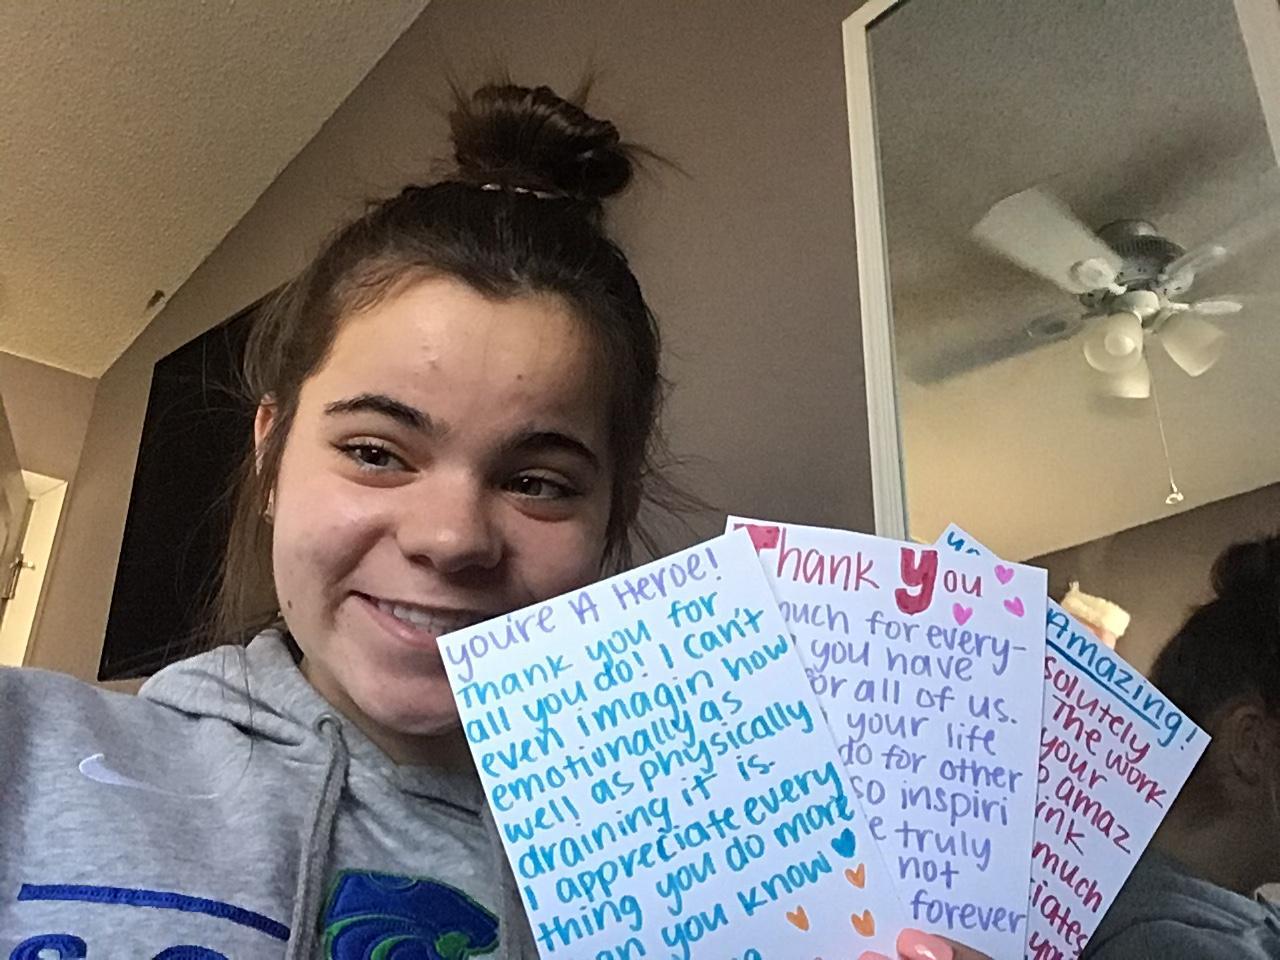 you're A Heroe!
Thank you for
all you do! I can't
even imagin how
emotionally as
well as physically
draining it is.
I appreciate every
thing you do more
you know
Thank You
much for every-
you have
for all of us.
your life
do for other
so inspiri
truly
not
forever
Amazing!
solutely
The work
your
amaz
ink
much
iates
you